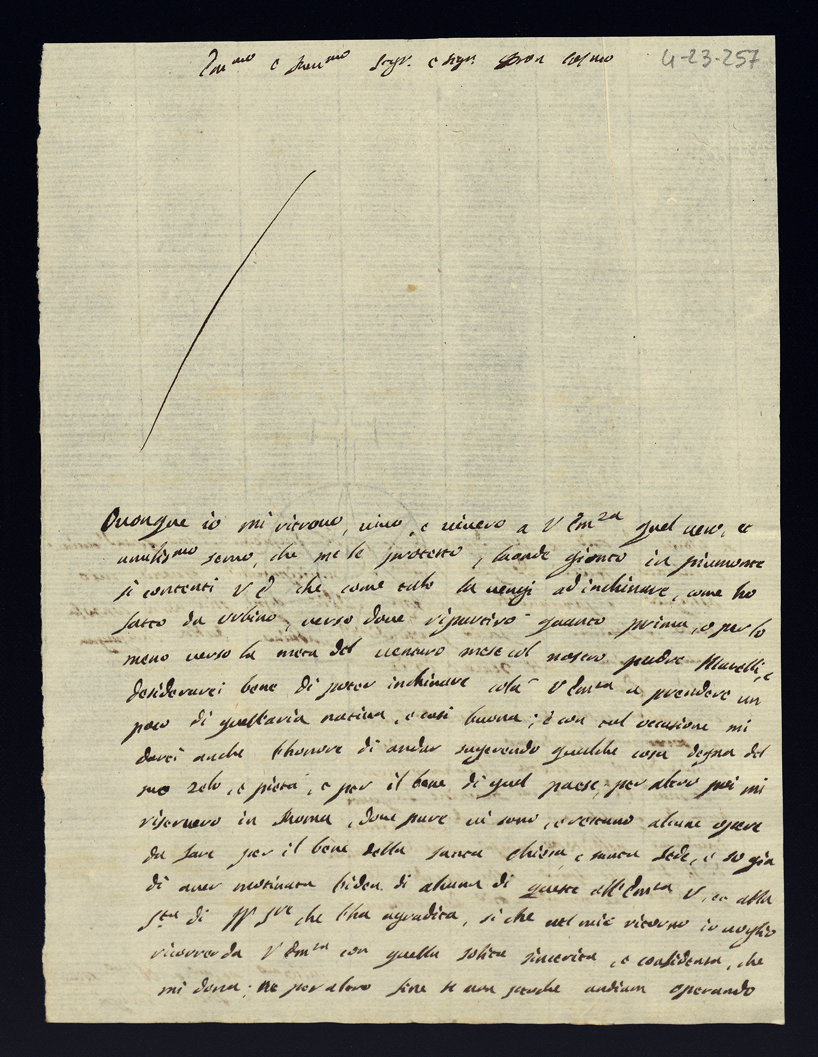 Em.mo e Rev.mo Sigr. e sigr. Pron Col.mo
4-23-257
Ovonque io mi ritrovo, vivo, e viverò a V Em.za quel vero, et
umilis.mo servo, che me le protesto, laonde gionto in piumonte
si contenti V E che come tale la vengi ad inchinare, come ho
fatto da urbino, verso dove ripartirò quanto prima, o per lo
meno verso la metà del venturo mese col nostro padre
desiderarei bene di poter inchinare colà V Em.za a prendere un
poco di quell'aria nativa, e così buona; e con tal occasione mi
darei anche l'honore di andar sugerendo qualche cosa degna del
suo zelo, e pietà, e per il bene di quel paese, per altro poi mi
riserverò in Roma, dove pure vi sono, e restano alcune opere
da fare per il bene della santa chiesa, e santa sede, e so già
di aver motivata l'idea di alcuna di queste all'Em.za V, et alla
S.tà di N S.re che l'ha agradita, si che nel mio ritorno io voglio
ricorrer da V Em.za con quella solita sincerità, e confidenza, che
mi dona; ne per altro fine se non perche andiam operando